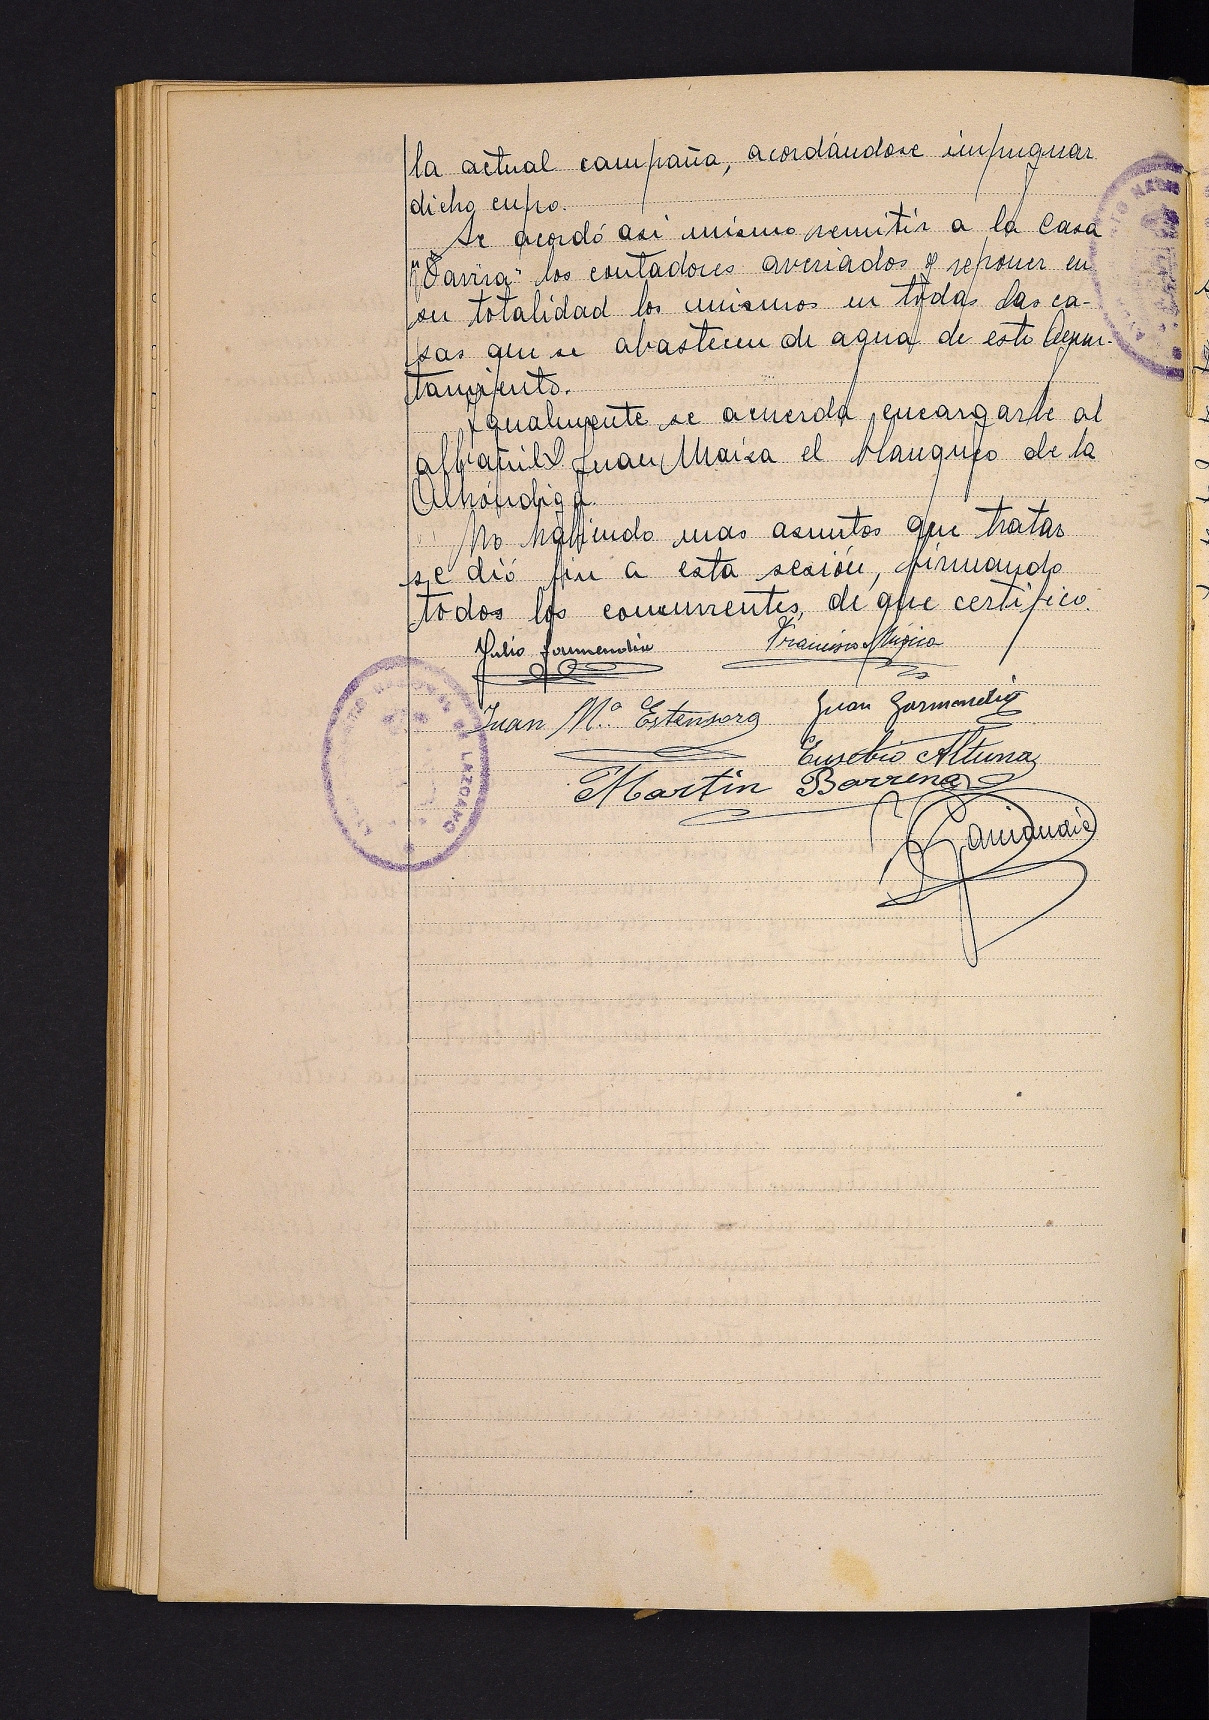 la actual campaña, acordándose impugnar
dicho cupo.
Se acordó asi mismo remitir a la Casa
"Tavira" los contadores averiados y reponer en
su totalidad los mismos en todas las ca-
sas que se abastecen de agua de este Ayun-
tamiento.
Igualmente se acuerda encargarle al
albañil Juan Maiza el blanqueo de la
Alhóndiga.
No habiendo mas asuntos que tratar
se dió fin a esta sesión, firmando
todos los concurrentes, de que certifico.
Julio Garmendia Francisco Mugica
Juan Mª Estensoro Juan Garmendia
Eusebio Altuna
Martin Barrena
LAZCANO